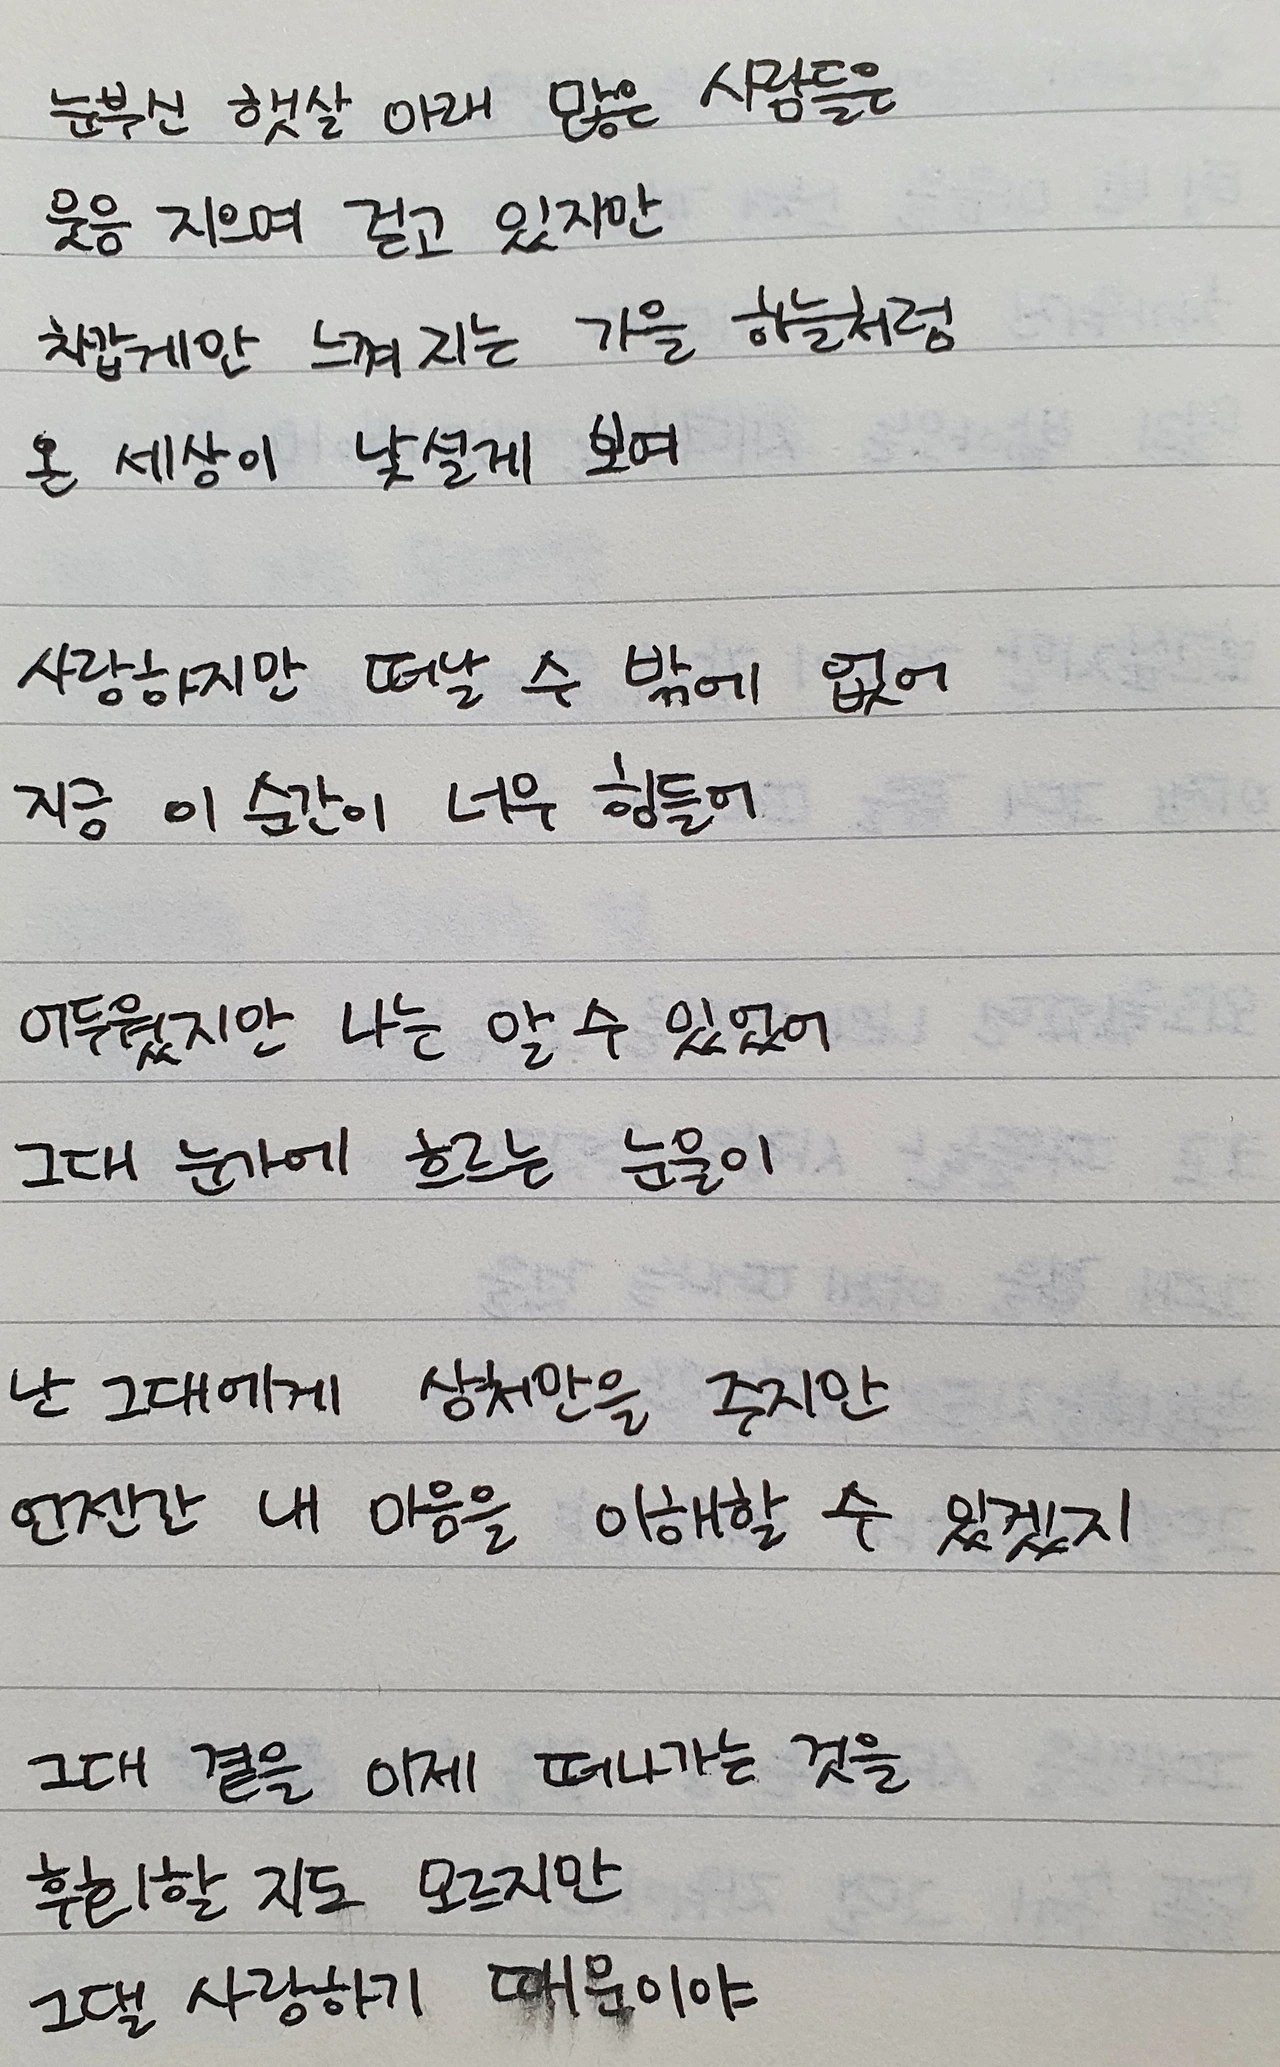 눈부신 햇살 아래 많은 사람들은
웃음 지으며 걷고 있지만
차갑게만 느껴지는 가을 하늘처럼
온 세상이 낯설게 보여
사랑하지만 떠날 수 밖에 없어
지금 이 순간이 너무 힘들어
어두웠지만 나는 알 수 있었어
그대 눈가에 흐르는 눈물이
난 그대에게 상처만을 주지만
언젠간 내 마음을 이해할 수 있겠지
그대 곁을 이제 떠나가는 것을
후회할 지도 모르지만
그댈 사랑하기 때문이야